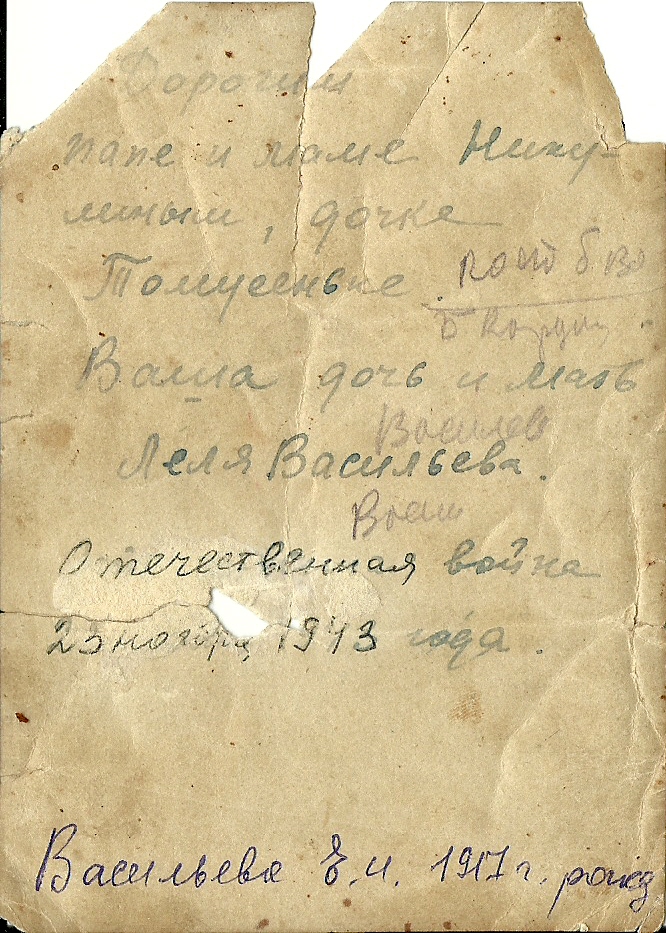 Дорогим
папе и маме Нику-
линым, дочке
Томусеньке.
Ваша дочь и мать
Василев
Леля Васильева.
Васи
Отечественная война
23 ноября 1943 года.
Васильева Е.И. 1917 г. рожд